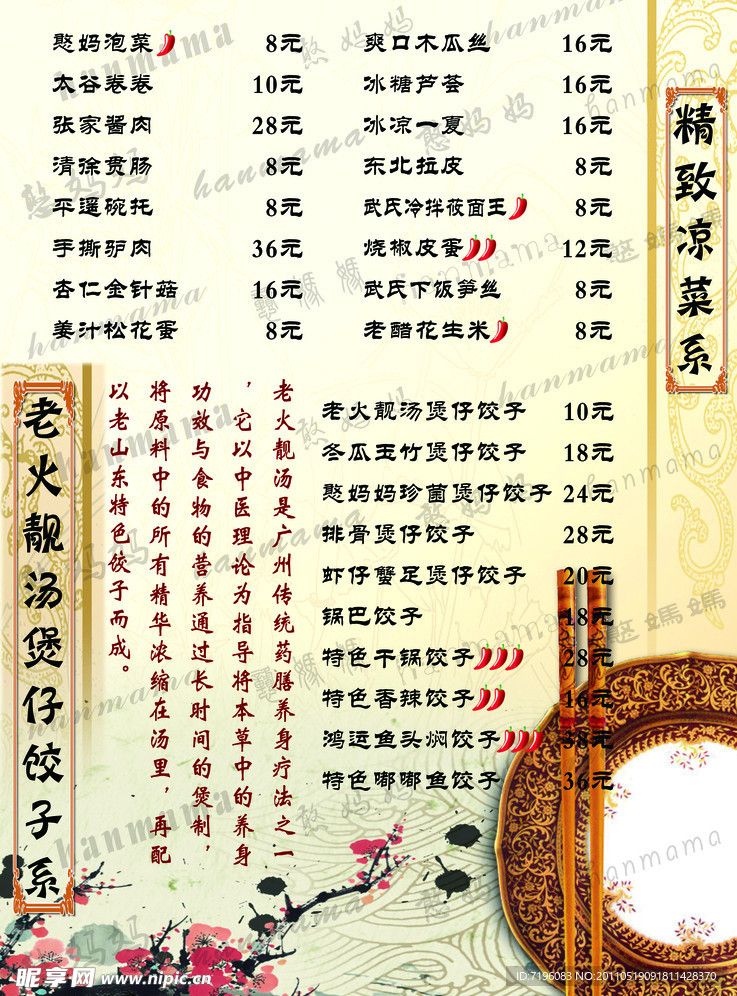 憨妈泡菜 8元
太谷卷卷 10元
张家酱肉 28元
清徐贯肠 8元
平遥碗托 8元
手撕驴肉 36元
杏仁金针菇 16元
姜汁松花蛋 8元
爽口木瓜丝 16元
冰糖芦荟 16元
冰凉一夏 16元
东北拉皮 8元
武氏冷拌莜面王 8元
烧椒皮蛋 12元
武氏下饭笋丝 8元
老醋花生米 8元
精致凉菜系
老火靓汤煲仔饺子系
老火靓汤是广州传统药膳养身疗法之一
，它以中医理论为指导将本草中的养身
功效与食物的营养通过长时间的煲制，
将原料中的所有精华浓缩在汤里，再配
以老山东特色饺子而成。
老火靓汤煲仔饺子 10元
冬瓜玉竹煲仔饺子 18元
憨妈妈珍菌煲仔饺子 24元
排骨煲仔饺子 28元
虾仔蟹足煲仔饺子 20元
锅巴饺子 18元
特色干锅饺子 28元
特色香辣饺子 16元
鸿运鱼头焖饺子 38元
特色嘟嘟鱼饺子 36元
憨妈妈 hanmama
昵享网 www.nipic.cn
ID:7196083 NO:20110519091811428370